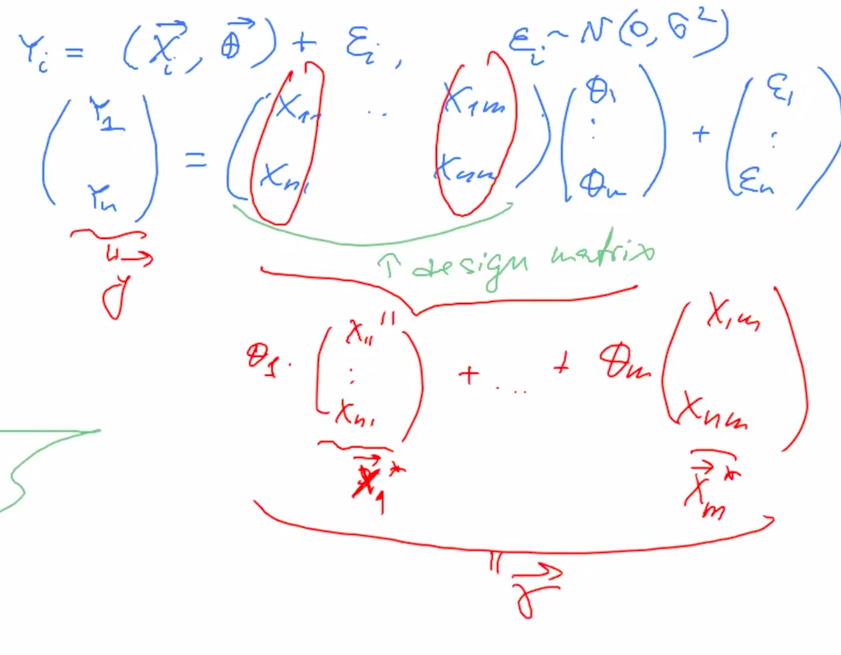 Y_i = (X⃗_i, θ⃗) + ε_i, ε_i ~ N(0, σ²)
(Y_1 Y_n) = (X_11 .. X_1m X_n1 X_nm) (θ_1 : θ_m) + (ε_1 : ε_n)
" y⃗
↑ design matrix
"
θ_1 · (X_11 : X_n1) + ... + θ_m (X_1m X_nm)
X⃗_1* X⃗_m*
" γ⃗